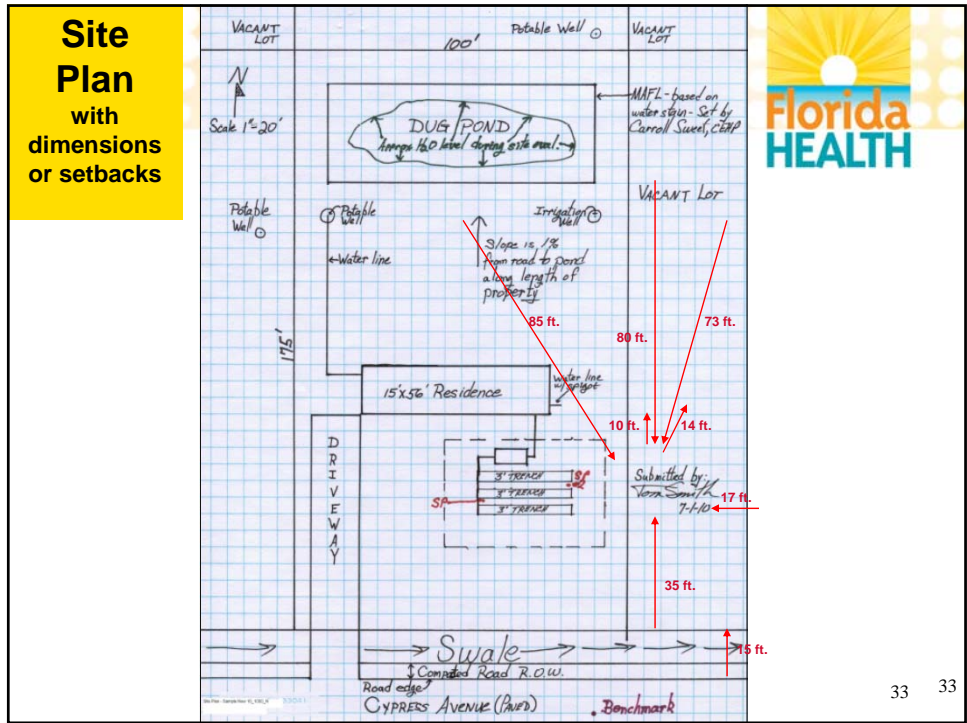 Site
Plan
with
dimensions
or setbacks
VACANT
LOT
100'
Potable Well
VACANT
LOT
N
Scale 1"=20'
DUG POND
Average H2O level during site eval.
MAFL-based on
water stain-Set by
Carroll Sweet, CEHP
Florida
HEALTH
VACANT LOT
Potable
Well
Potable
Well
Irrigation
Well
Water line
Slope is 1%
from road to pond
along length of
property
85 ft.
80 ft.
73 ft.
175'
15'x56' Residence
water line
w/spigot
10 ft.
14 ft.
DRIVEWAY
3' TRENCH
3' TRENCH
3' TRENCH
SP
SP
#2
Submitted by:
Tom Smith
7-1-10
17 ft.
35 ft.
Swale
15 ft.
Compacted Road R.O.W.
Road edge
CYPRESS AVENUE (PAVED)
Benchmark
33
33